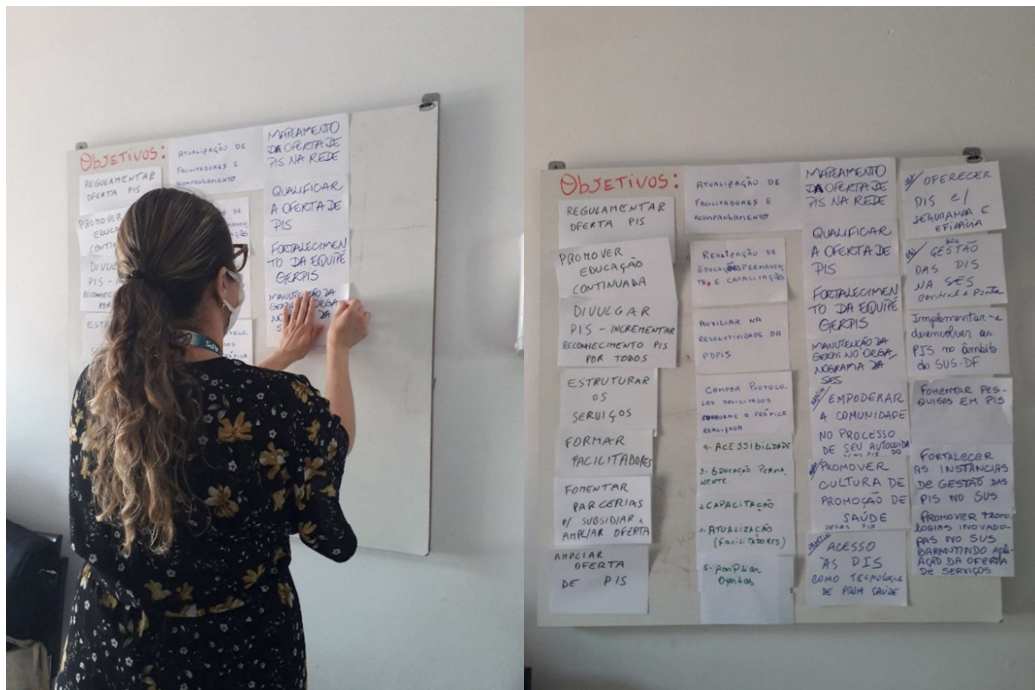 OBJETIVOS:
REGULAMENTAR
OFERTA PIS
PROMOVER
EDUCA
CONTIN
DIVUL
PIS - IN
ATUALIZAÇÃO DE
FACILITADORES E
ACOMPANHAMENTO
MAPEAMENTO
DA OFERTA DE
PIS NA REDE
QUALIFICAR
A OFERTA DE
PIS
FORTALECIMEN
TO DA EQUIPE
GERPIS
MANUTENÇÃO DA
OBJETIVOS:
REGULAMENTAR
OFERTA PIS
PROMOVER
EDUCAÇÃO
CONTINUADA
DIVULGAR
PIS - INCREMENTAR
RECONHECIMENTO PIS
POR TODOS
ESTRUTURAR
OS
SERVIÇOS
FORMAR
FACILITADORES
FOMENTAR
PARCERIAS
P/ SUBSIDIAR E
AMPLIAR OFERTA
AMPLIAR
OFERTA
DE PIS
ATUALIZAÇÃO DE
FACILITADORES E
ACOMPANHAMENTO
REALIZAÇÃO DE
E CAPACITAÇÃO
AUXILIAR NA
RESOLUTIVIDADE DA
PDPIS
COMPOR PROTOCO
LOS SOLICITADOS
CONFORME A PRÁTICA
REALIZADA
ACESSIBILIDADE
3- EDUCAÇÃO PERMA
NENTE.
CAPACITAÇÃO
ATUALIZAÇÃO
(FACILITADORES)
5- Ampliar
Ofertas
MAPEAMENTO
DA OFERTA DE
PIS NA REDE
QUALIFICAR
A OFERTA DE
PIS
FORTALECIMEN
TO DA EQUIPE
GERPIS
MANUTENÇÃO DA
GERPIS NO ORGA
NOGRAMA DA
SES
EMPODERAR
A COMUNIDADE
NO PROCESSO
DE SEU AUTOCUIDA
PROMOVER
CULTURA DE
PROMOÇÃO DE
SAÚDE
ACESSO
ÀS PIS
COMO TECNOLOGIA
DE PROM SAÚDE
OFERECER
PIS C/
SEGURANÇA E
EFICÁCIA
GESTÃO
DAS PIS
NA SES
Implementar e
desenvolver as
PIS no âmbito
do SUS-DF
FOMENTAR PES-
QUISAS EM PIS
FORTALECER
AS INSTÂNCIAS
DE GESTÃO DAS
PIS NO SUS
PROMOVER TECNO
LOGIAS INOVADO
RAS NO SUS
GARANTINDO APLI
AÇÃO DA OFERTA
DE SERVIÇOS